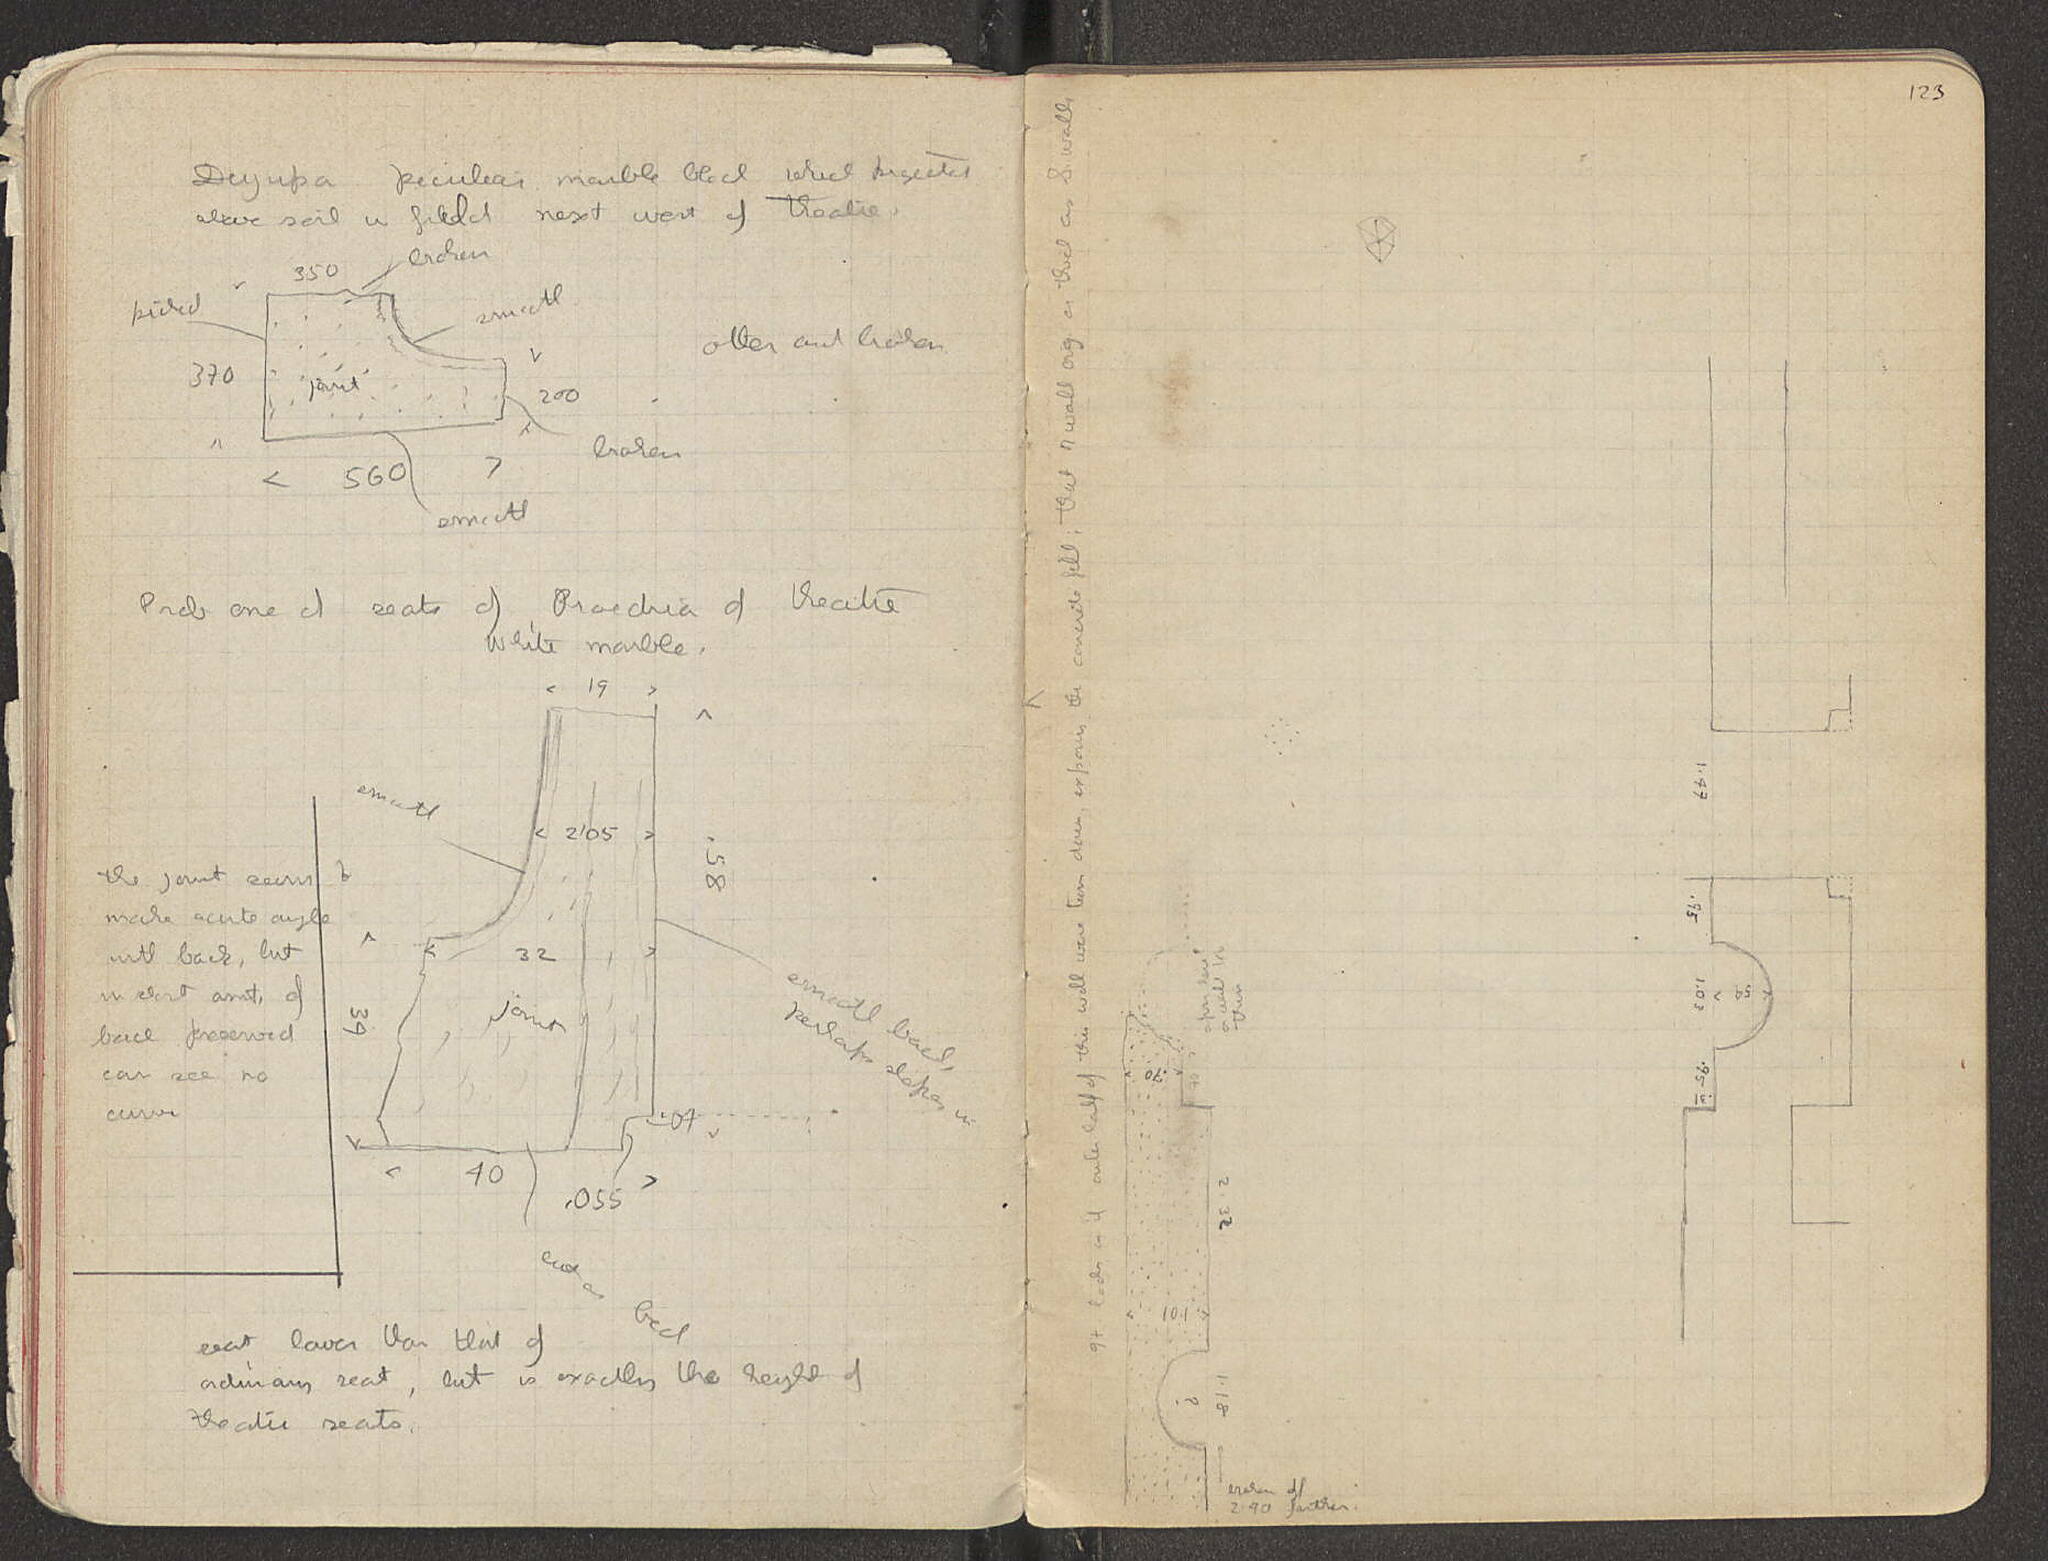 peculiar marble block which projects
above soil in field next west of theatre.
broken
350
picked
smooth
other end broken
370
joint
200
broken
560
smooth
Prob one of seats of Proedria of theatre
White marble.
19
smooth
2'05
.58
the joint seems to
make acute angle
with back, but
in short amt. of
back preserved
can see no
curve
32
39
joint
smooth back,
perhaps slopes in
.07
40
.055
bed
seat lower than that of
ordinary seat, but is exactly the height of
theatre seats.
123
looks as if outer half of this wall were torn down, exposing the concrete fill; that N wall orig. as thick as S. wall
1.47
.95
1.03
.95
.70
2.32
1.01
1.18
?
broken off
2.90 farther.